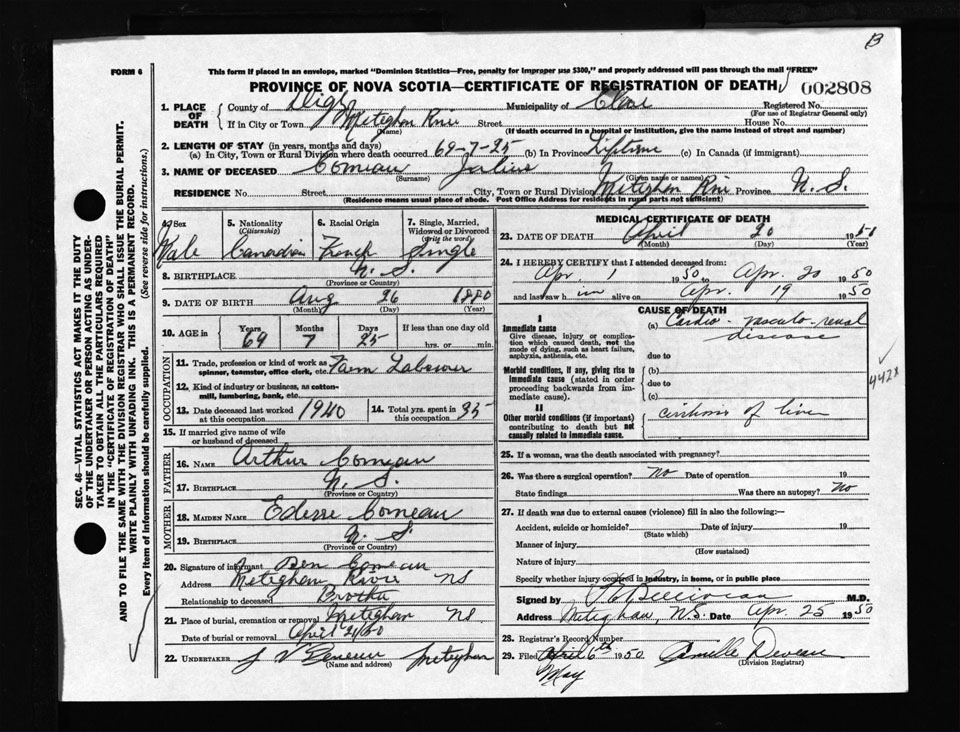 B
FORM 6
This form if placed in an envelope, marked "Dominion Statistics—Free, penalty for improper use $300," and properly addressed will pass through the mail "FREE"
PROVINCE OF NOVA SCOTIA—CERTIFICATE OF REGISTRATION OF DEATH
002808
1. PLACE OF DEATH
County of Digby Municipality of Clare Registered No.
(For use of Registrar General only)
If in City or Town Meteghan River Street House No.
(Name) (If death occurred in a hospital or institution, give the name instead of street and number)
2. LENGTH OF STAY (in years, months and days)
(a) In City, Town or Rural Division where death occurred 69-7-25 (b) In Province Lifetime (c) In Canada (if immigrant)
3. NAME OF DECEASED Comeau
(Surname) (Given name or names)
RESIDENCE No. Street City, Town or Rural Division Meteghan River Province N. S.
(Residence means usual place of abode. Post Office Address for residents in rural parts not sufficient)
4. Sex 5. Nationality (Citizenship) 6. Racial Origin 7. Single, Married, Widowed or Divorced (write the word)
Male Canadian French Single
8. BIRTHPLACE N. S.
(Province or Country)
9. DATE OF BIRTH Aug 26 1880
(Month) (Day) (Year)
10. AGE in Years Months Days If less than one day old
69 7 25 hrs. or min.
OCCUPATION
11. Trade, profession or kind of work as spinner, teamster, office clerk, etc. Farm Labourer
12. Kind of industry or business, as cotton-mill, lumbering, bank, etc.
13. Date deceased last worked at this occupation 1940 14. Total yrs. spent in this occupation 35
15. If married give name of wife or husband of deceased
FATHER
16. NAME Arthur Comeau
17. BIRTHPLACE N. S.
(Province or Country)
MOTHER
18. MAIDEN NAME Comeau
19. BIRTHPLACE N. S
(Province or Country)
20. Signature of informant Ben Comeau
Address Meteghan River NS
Relationship to deceased Brother
21. Place of burial, cremation or removal Meteghan NS
Date of burial or removal April 21/50
22. UNDERTAKER J V Meteghan
(Name and address)
MEDICAL CERTIFICATE OF DEATH
23. DATE OF DEATH April 20 1950
(Month) (Day) (Year)
24. I HEREBY CERTIFY that I attended deceased from:
Apr. 1 1950 to Apr. 20 1950
and last saw h im alive on Apr. 19 1950
CAUSE OF DEATH
I
Immediate cause
Give disease, injury or complication which caused death, not the mode of dying, such as heart failure, asphyxia, asthenia, etc.
(a) Cardio-vasculo-renal disease
due to
Morbid conditions, if any, giving rise to immediate cause (stated in order proceeding backwards from immediate cause).
(b)
due to
(c)
442x
II
Other morbid conditions (if important) contributing to death but not causally related to immediate cause.
cirrhosis of liver
25. If a woman, was the death associated with pregnancy?
26. Was there a surgical operation? No Date of operation 19
State findings Was there an autopsy? No
27. If death was due to external causes (violence) fill in also the following:—
Accident, suicide or homicide? Date of injury 19
(State which)
Manner of injury
(How sustained)
Nature of injury
Specify whether injury occurred in industry, in home, or in public place
Signed by M.D.
Address Meteghan, N.S. Date Apr. 25 1950
28. Registrar's Record Number
29. Filed April 6th 1950 Camille Deveau
May (Division Registrar)
SEC. 46—VITAL STATISTICS ACT MAKES IT THE DUTY
OF THE UNDERTAKER OR PERSON ACTING AS UNDER-
TAKER TO OBTAIN ALL THE PARTICULARS REQUIRED
IN THE "CERTIFICATE OF REGISTRATION OF DEATH"
AND TO FILE THE SAME WITH THE DIVISION REGISTRAR WHO SHALL ISSUE THE BURIAL PERMIT.
WRITE PLAINLY WITH UNFADING INK. THIS IS A PERMANENT RECORD.
Every item of information should be carefully supplied. (See reverse side for instructions.)